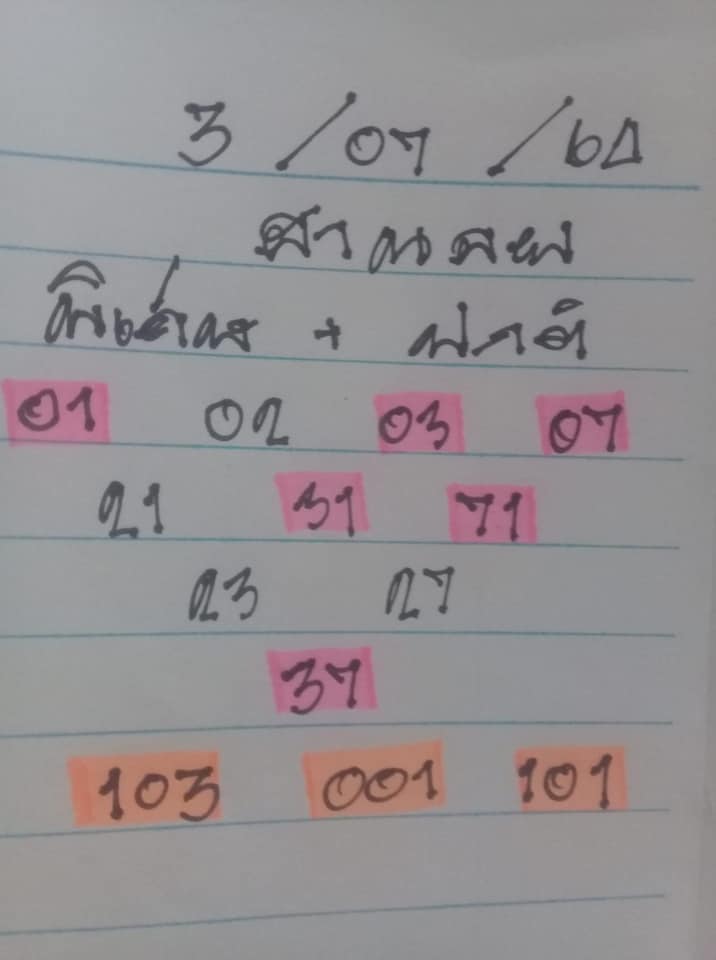 3 / 07 / 64
ฮานอย
พิเศษ + ปกติ
01 02 03 07
21 31 71
23 27
37
103 001 101